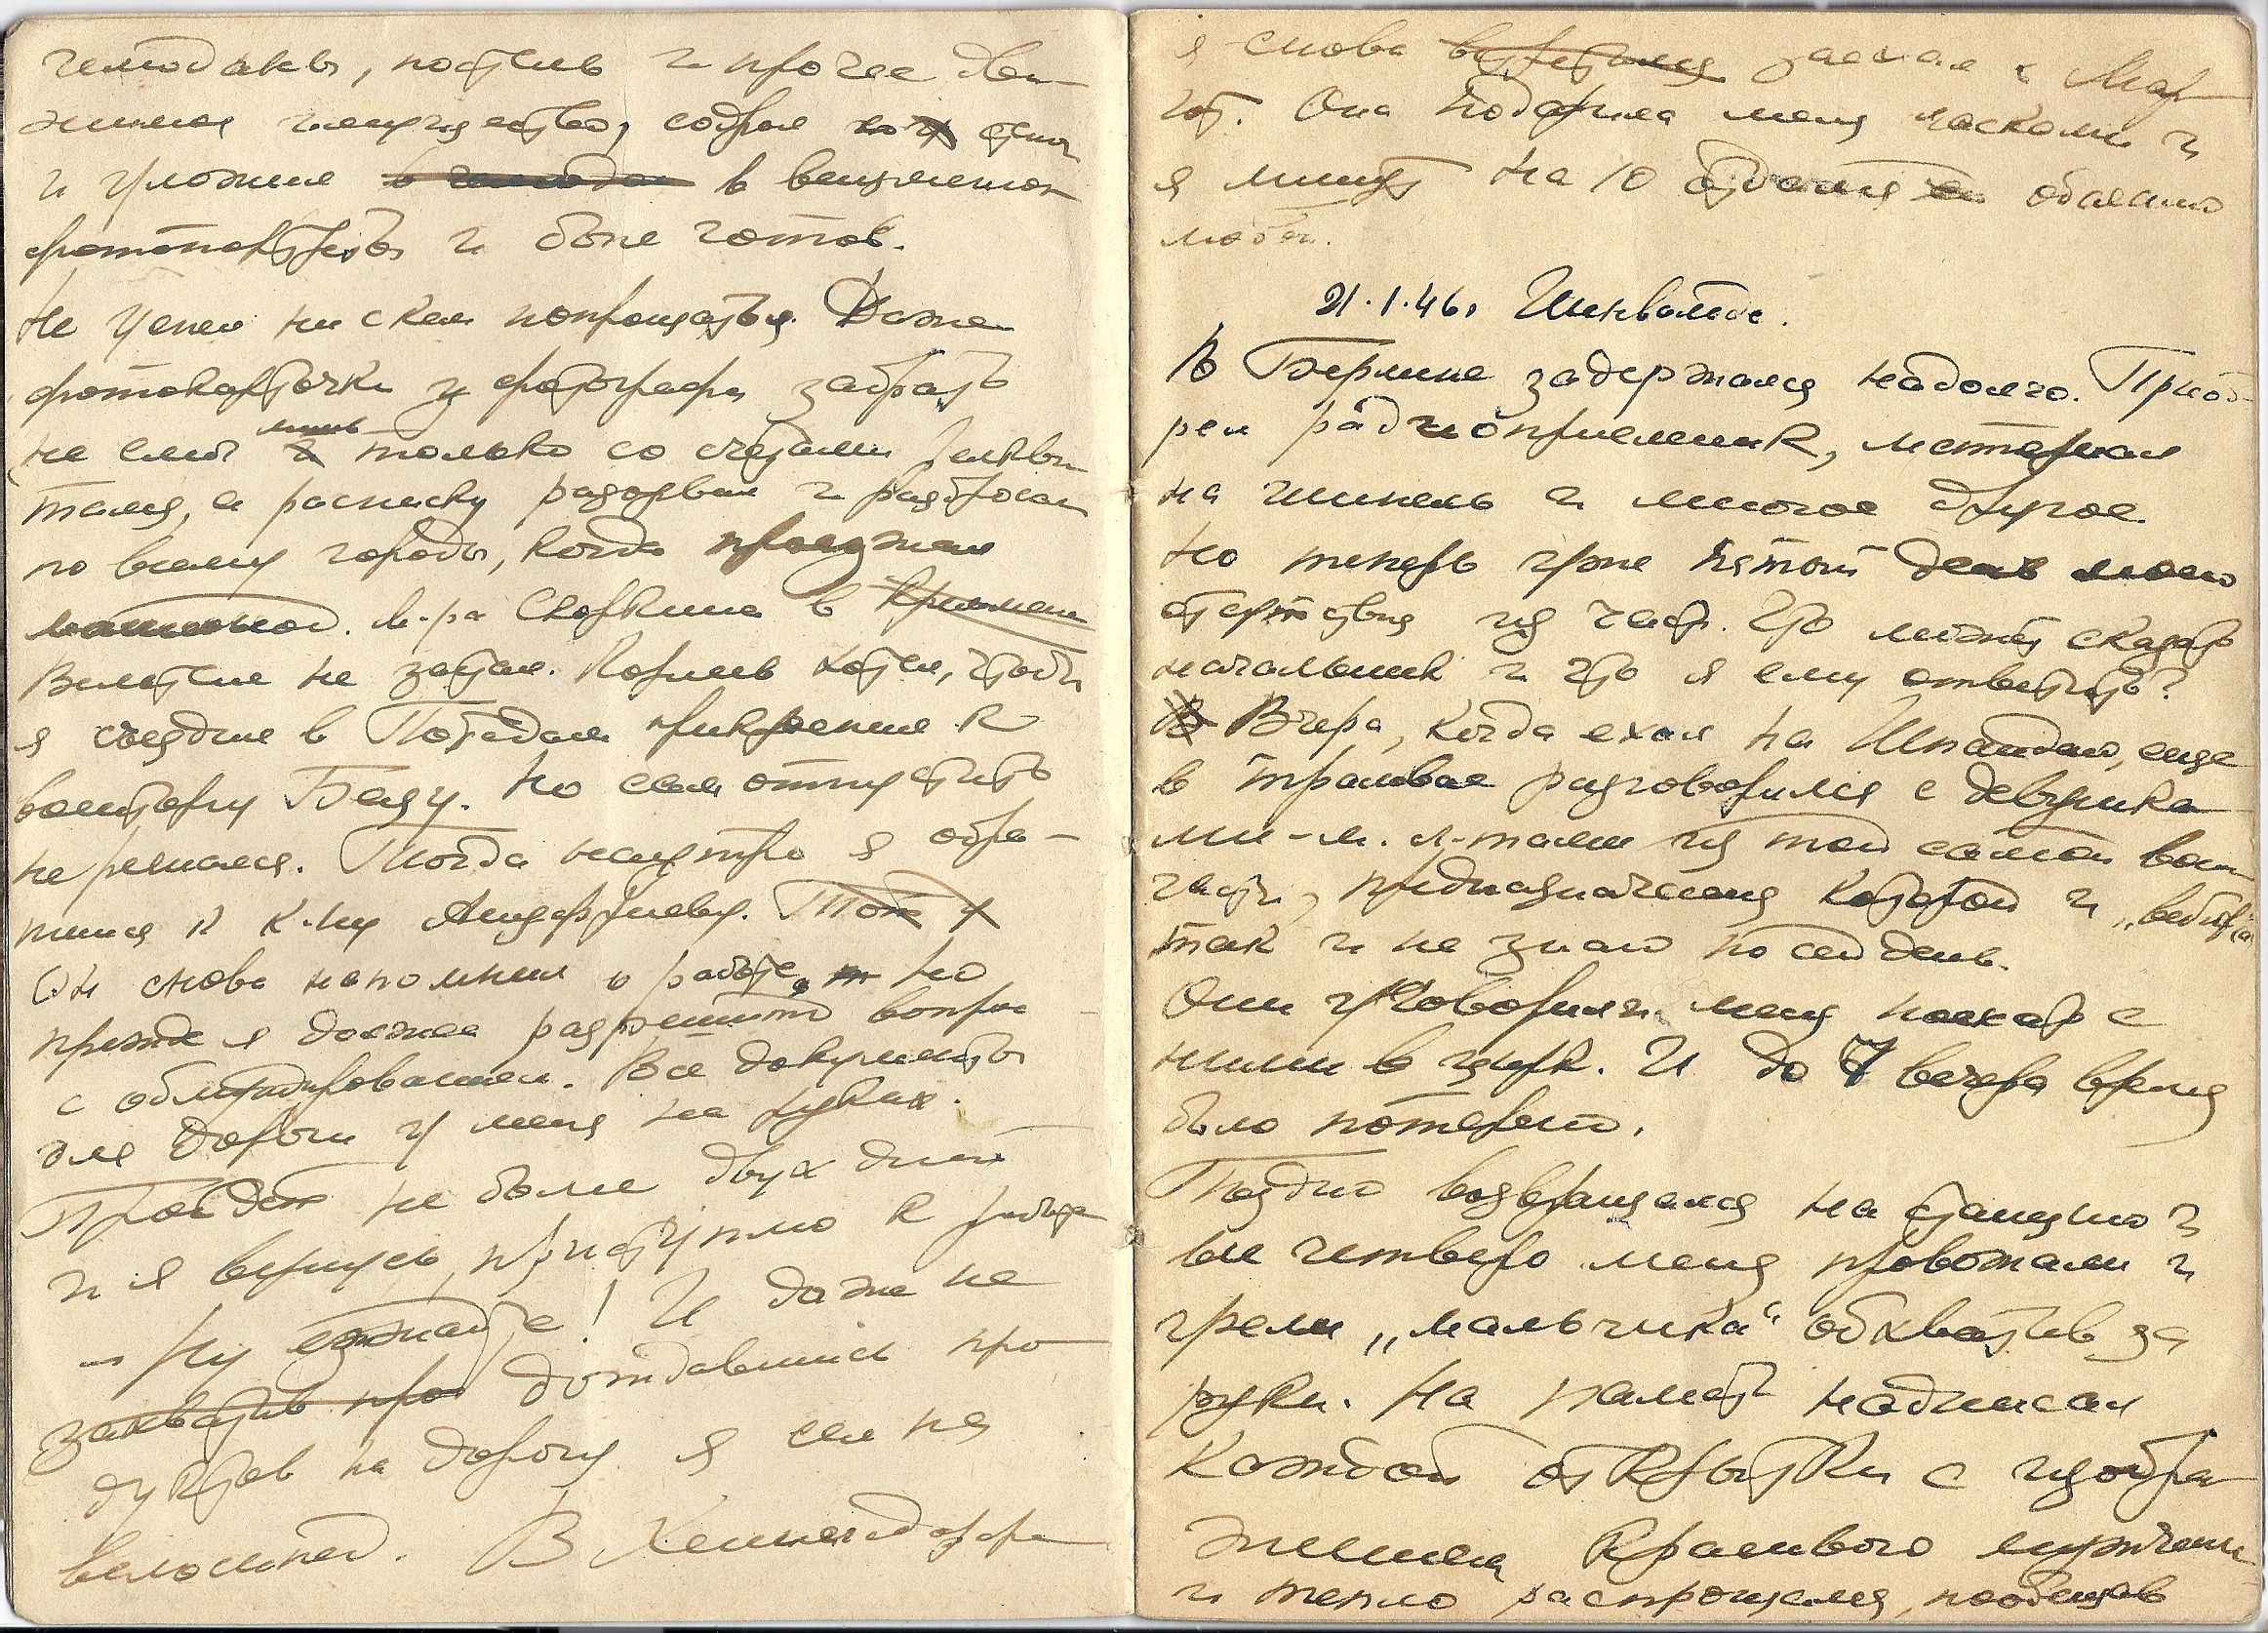 чемоданы, постель и прочее дви-
жимое имущество, собрал
и уложил в чемодан в вещмешок
фотопортреты и был готов.
Не успел ни с кем попрощаться. Даже
фотокарточки у фотографа забрать
не смог лишь только со счетами
а расписку разорвал и разбросал
по всему городу, когда проезжал
машиной. М-ра Скоркина в Креммен
не застал. Корнев хотел, чтобы
я съездил в Потсдам прикрепил к
Но сам отпустить
не решался. Тогда наутро я обра-
тился к к-ну Тот
Он снова напомнил о работе, но
прежде я должен разрешить вопрос
с обмундированием. Все документы
для дороги у меня на руках.
Пройдет не более двух дней
и я вернусь, приступлю к работе
– Ну езжайте! И даже не
захватив про дождавшись про-
дуктов на дорогу я сел на
велосипед. В Хеннигсдорфе
я снова встретился заехал к Мар-
гот. Она подарила меня ласками и
я минут на 10 отдался ее обаянию
любви.
21.1.46. Шенвальде.
В Берлине задержался надолго. Приоб-
рел радиоприемник, материал
на шинель и многое другое.
Но теперь уже пятый день моего
отсутствия из части. Что может сказать
начальник и что я ему ответить?
В Вчера, когда ехал на Шпандау, еще
в трамвае разговорился с девушка-
ми - м. л-тами из той самой воин
части, предназначения которой и
так и не знаю по сей день.
Они уговорили меня поехать с
ними в цирк. И до 7 вечера время
было потеряно.
Поздно возвращался на станцию и
все четверо меня провожали и
грели „мальчика“ обхватив за
руки. На память надписал
каждой открытки с изобра-
жением красивого мужчины
и тепло распрощался, пообещав